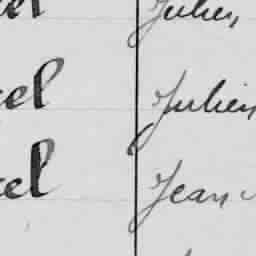 el Julien
el Julien
el Jean